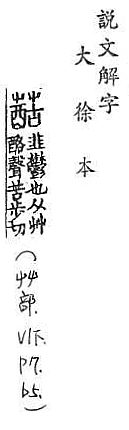 說文解字
大徐本
䔯
韭鬱也从艸
酤聲苦步切
(艸部.
V1下.
P7.
b5.)